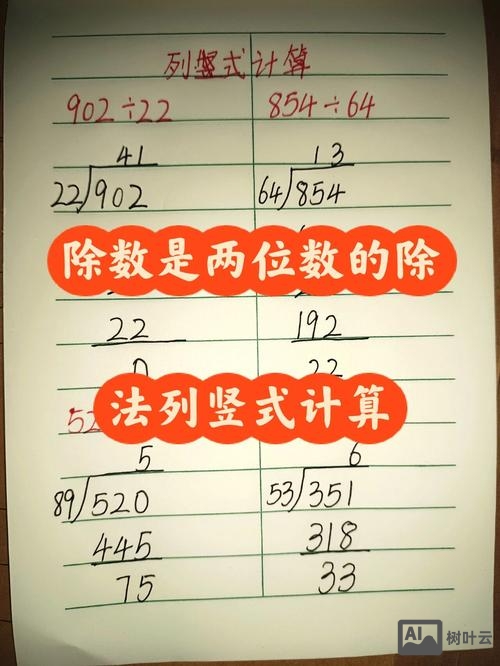 列竖式计算
902÷22 854÷64
41 13
22 902 64 854
除数是两位数的除
22 192
0 22
法列竖式计算
52
5 6
89 520 53 351
445 318
75 33
AI 树叶云